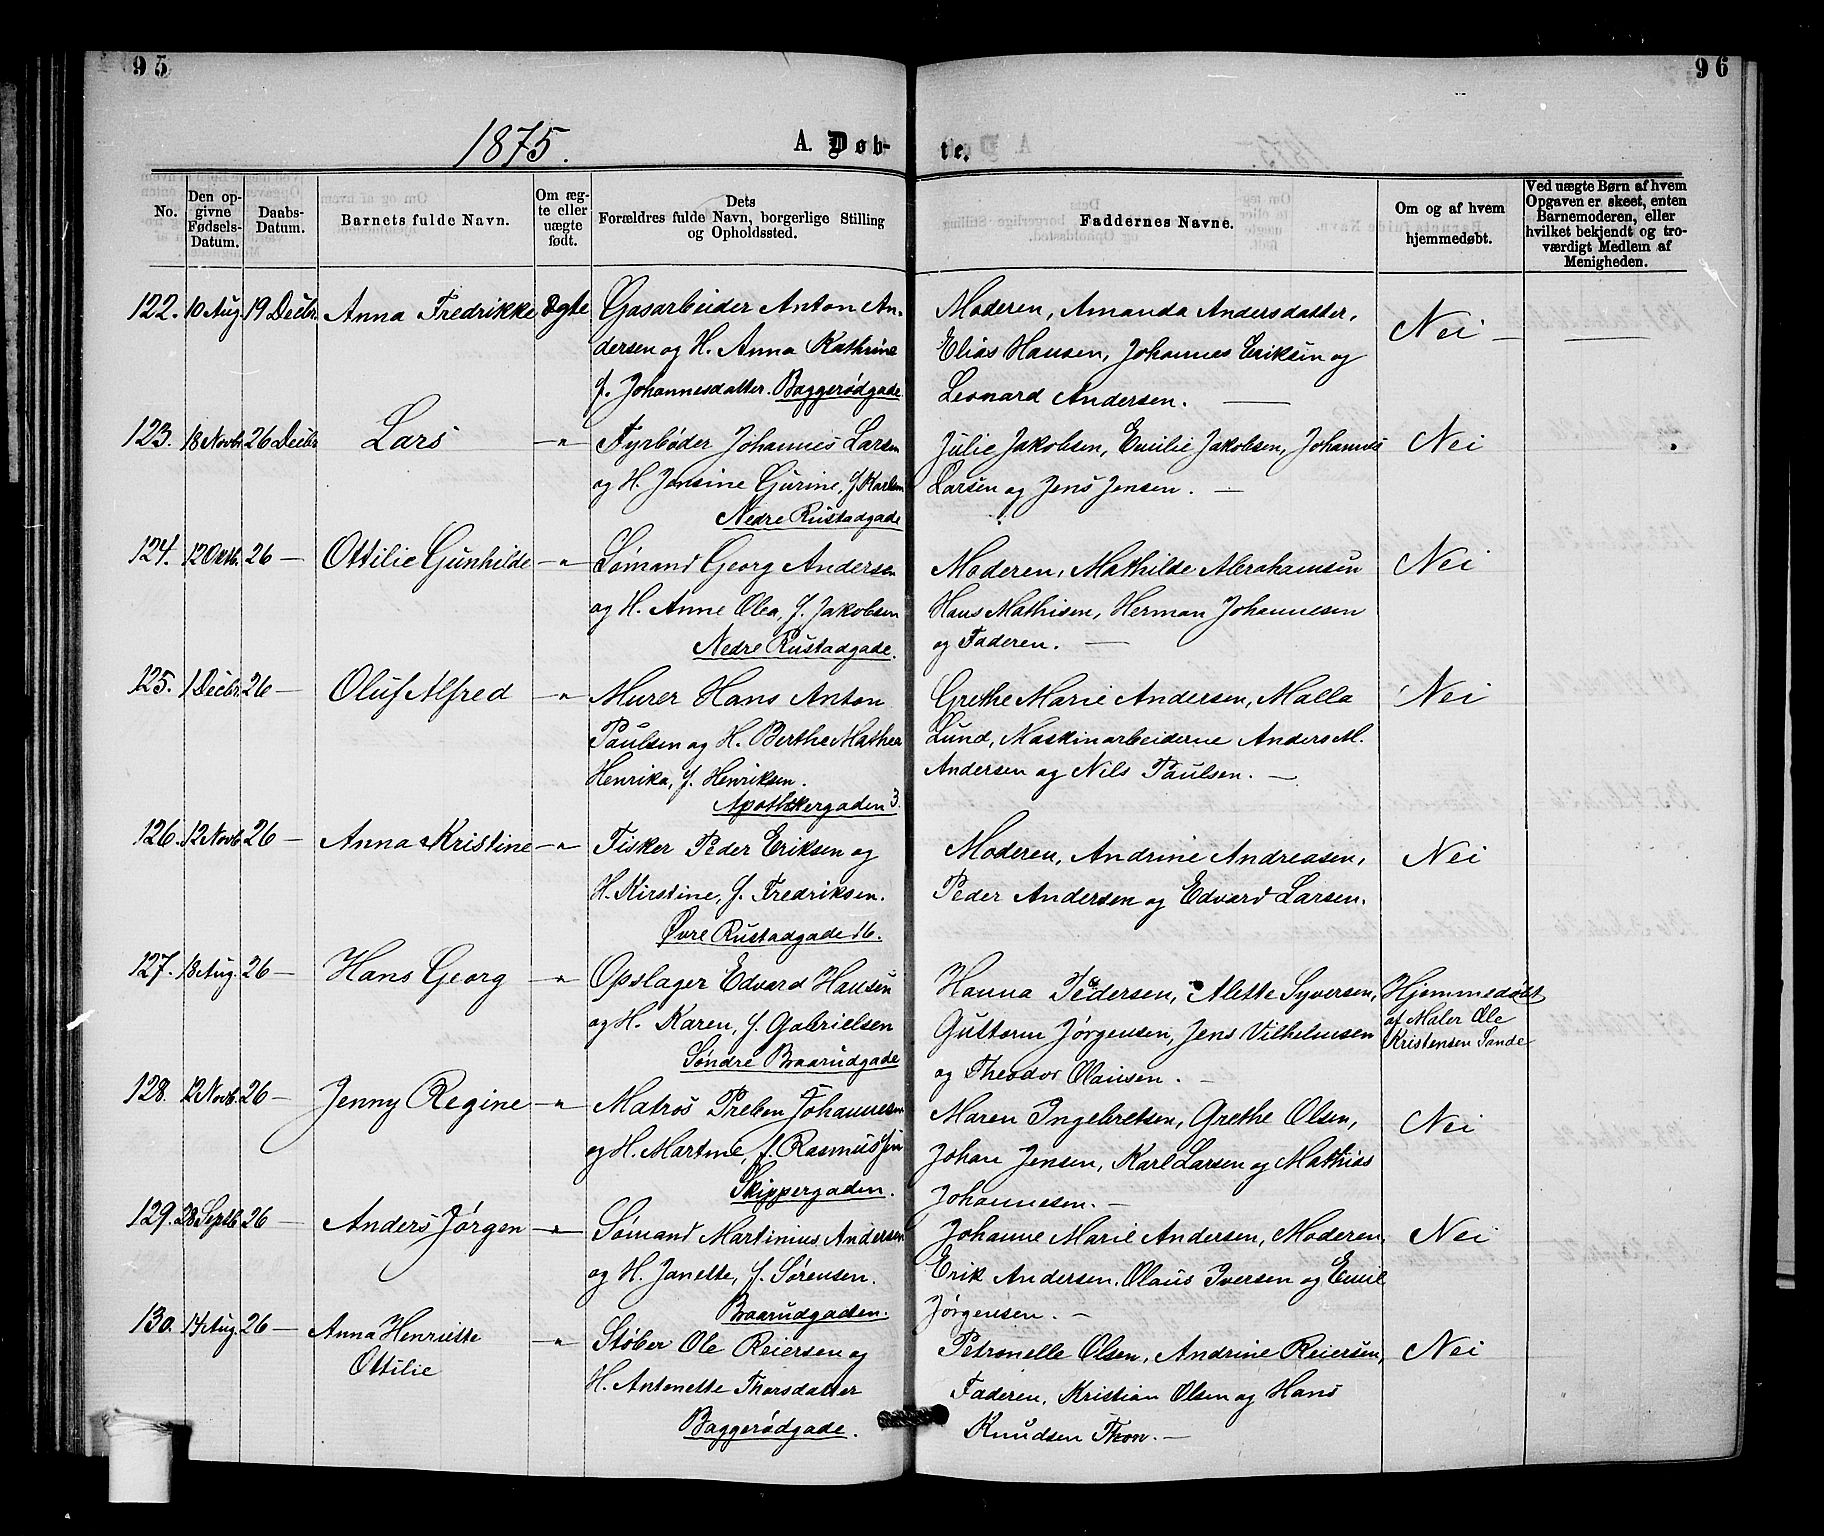 95
96
1875.
A. Døb-
te.
No.
Den op-
givne
Fødsels-
Datum.
Daabs-
Datum.
Barnets fulde Navn.
Om æg-
te eller
uægte
født.
Dets
Forældres fulde Navn, borgerlige Stilling
og Opholdssted.
Faddernes Navne.
Om og af hvem
hjemmedøbt.
Ved uægte Børn af hvem
Opgaven er skeet, enten
Barnemoderen, eller
hvilket bekjendt og tro-
værdigt Medlem af
Menigheden.
122. 10 Aug. 19 Decbr. Anna Fredrikke Ægte Gasarbeider Anton An- Moderen, Amanda Andersdatter, Nei —
dersen og H. Anna Kathrine Elias Hansen, Johannes Eriksen og
f. Johannesdatter. Baggerødgade Leonard Andersen. —
123. 18 Novbr. 26 Decbr Lars —"— Fyrbøder Johannes Larsen Julie Jakobsen, Emilie Jakobsen, Johannes Nei
og H. Jensine Gurine, f. Larsen og Jens Jensen. —
Nedre Rustadgade
124. 12 Oktb. 26 — Ottilie Gunhilde —"— Sømand Georg Andersen Moderen, Mathilde Abrahamsen Nei
og H. Anne Olea, f. Jakobsen Hans Mathisen, Herman Johannesen
Nedre Rustadgade. og Faderen. —
125. 1 Decbr. 26 — Oluf Alfred —"— Murer Hans Anton Grethe Marie Andersen, Malla Nei
Paulsen og H. Berthe Mathea Lund, Maskinarbeiderne Anders M.
Henrika, f. Henriksen. Andersen og Nils Paulsen. —
Apothekergaden 3.
126. 12 Novb. 26 — Anna Kristine —"— Fisker Peder Eriksen og Moderen, Andrine Andreasen, Nei
H. Kirstine, f. Fredriksen. Peder Andersen og Edvard Larsen.
Øvre Rustadgade 16.
127. 18 Aug. 26 — Hans Georg —"— Opslager Edvard Hansen Hanna Pedersen, Alette Syversen, Hjemmedøbt
og H. Karen, f. Gabrielsen Guttorm Jørgensen, Jens Vilhelmsen af Maler Ole
Søndre Baarudgade og Theodor Olausen. — Kristensen Sande
128. 12 Novb. 26 — Jenny Regine —"— Matros Preben Johannesen Maren Ingebretsen, Grethe Olsen, Nei
og H. Martine, f. Rasmussen Johan Jensen, Karl Larsen og Mathias
Skippergaden. Johannesen. —
129. 28 Septb. 26 — Anders Jørgen —"— Sømand Martinius Andersen Johanne Marie Andersen, Moderen, Nei
og H. Janette, f. Sørensen. Erik Andersen, Olaus Iversen og Emil
Baarudgaden. Jørgensen. —
130. 14 Aug. 26 — Anna Henriette —"— Støber Ole Reiersen og Petronelle Olsen, Andrine Reiersen, Nei
Ottilie H. Antonette Thorsdatter Faderen, Kristian Olsen og Hans
Baggerødgade. Knudsen Thon. —